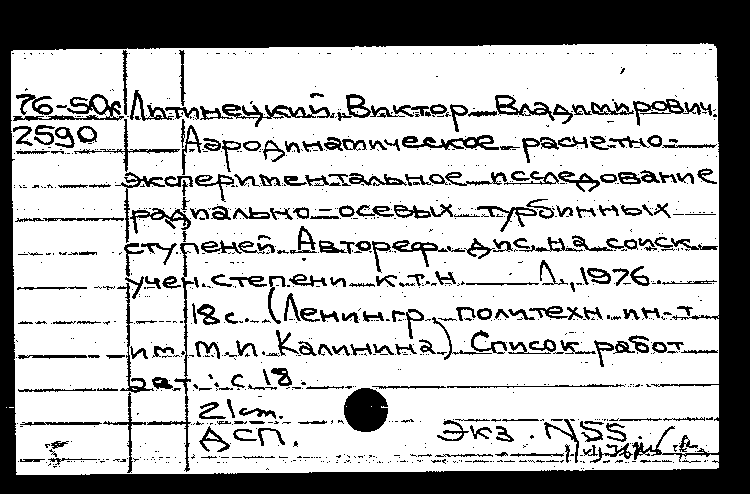 76-50к Литинецкий, Виктор Владимирович.
2590 Аэродинамическое расчетно-
экспериментальное исследование
радиально-осевых турбинных
ступеней. Автореф. дис. на соиск.
учен. степени к.т.н. Л., 1976.
18с. (Ленингр. политехн. ин-т
им. М.И. Калинина). Список работ
авт.: с. 18.
21 см.
ДСП. Экз. N55